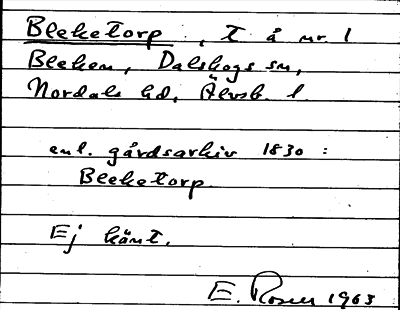 Bleketorp, t å nr 1
Bleken, Dalskogs sn,
Nordals hd, Älvsb. l.
enl. gårdsarkiv 1830 :
Bleketorp
Ej känt.
E. Rosen 1963